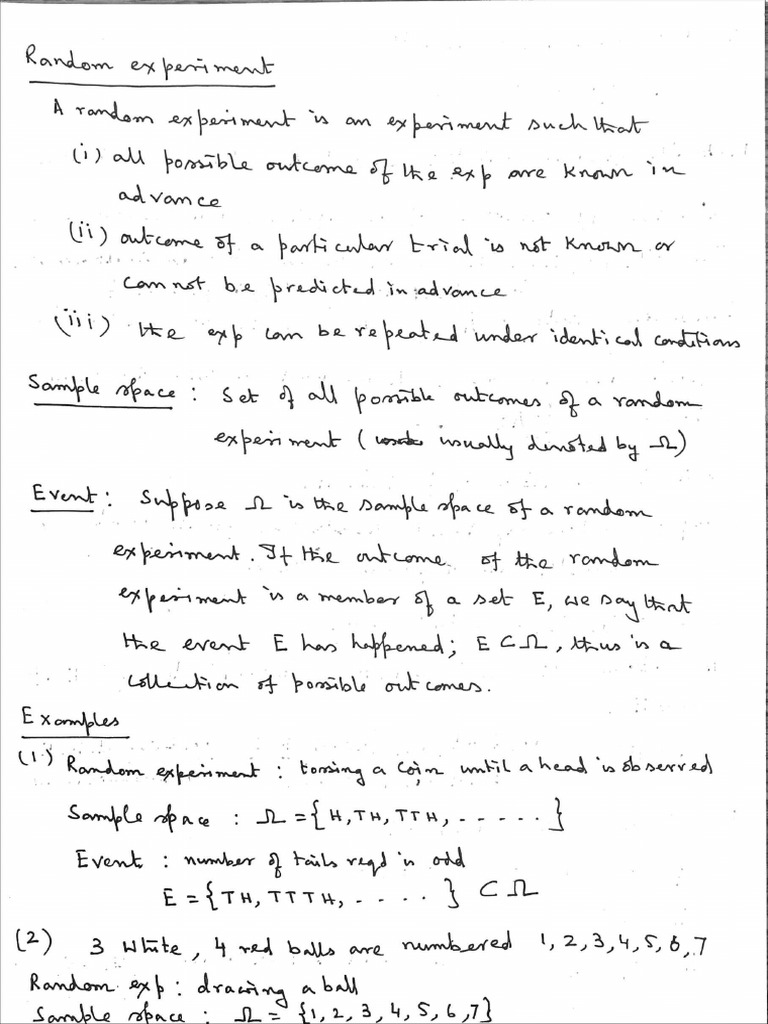 Random experiment
A random experiment is an experiment such that
(i) all possible outcome of the exp are known in
advance
(ii) outcome of a particular trial is not known or
can not be predicted in advance
(iii) the exp can be repeated under identical conditions
Sample space : Set of all possible outcomes of a random
experiment ( usually denoted by Ω)
Event : Suppose Ω is the sample space of a random
experiment. If the outcome of the random
experiment is a member of a set E, we say that
the event E has happened; E ⊂ Ω, thus is a
collection of possible outcomes.
Examples
(1) Random experiment : tossing a coin until a head is observed
Sample space : Ω = {H, TH, TTH, - - - - - }
Event : number of tails reqd is odd
E = {TH, TTTH, - - - - } ⊂ Ω
(2) 3 white, 4 red balls are numbered 1, 2, 3, 4, 5, 6, 7
Random exp : drawing a ball
Sample space : Ω = {1, 2, 3, 4, 5, 6, 7}